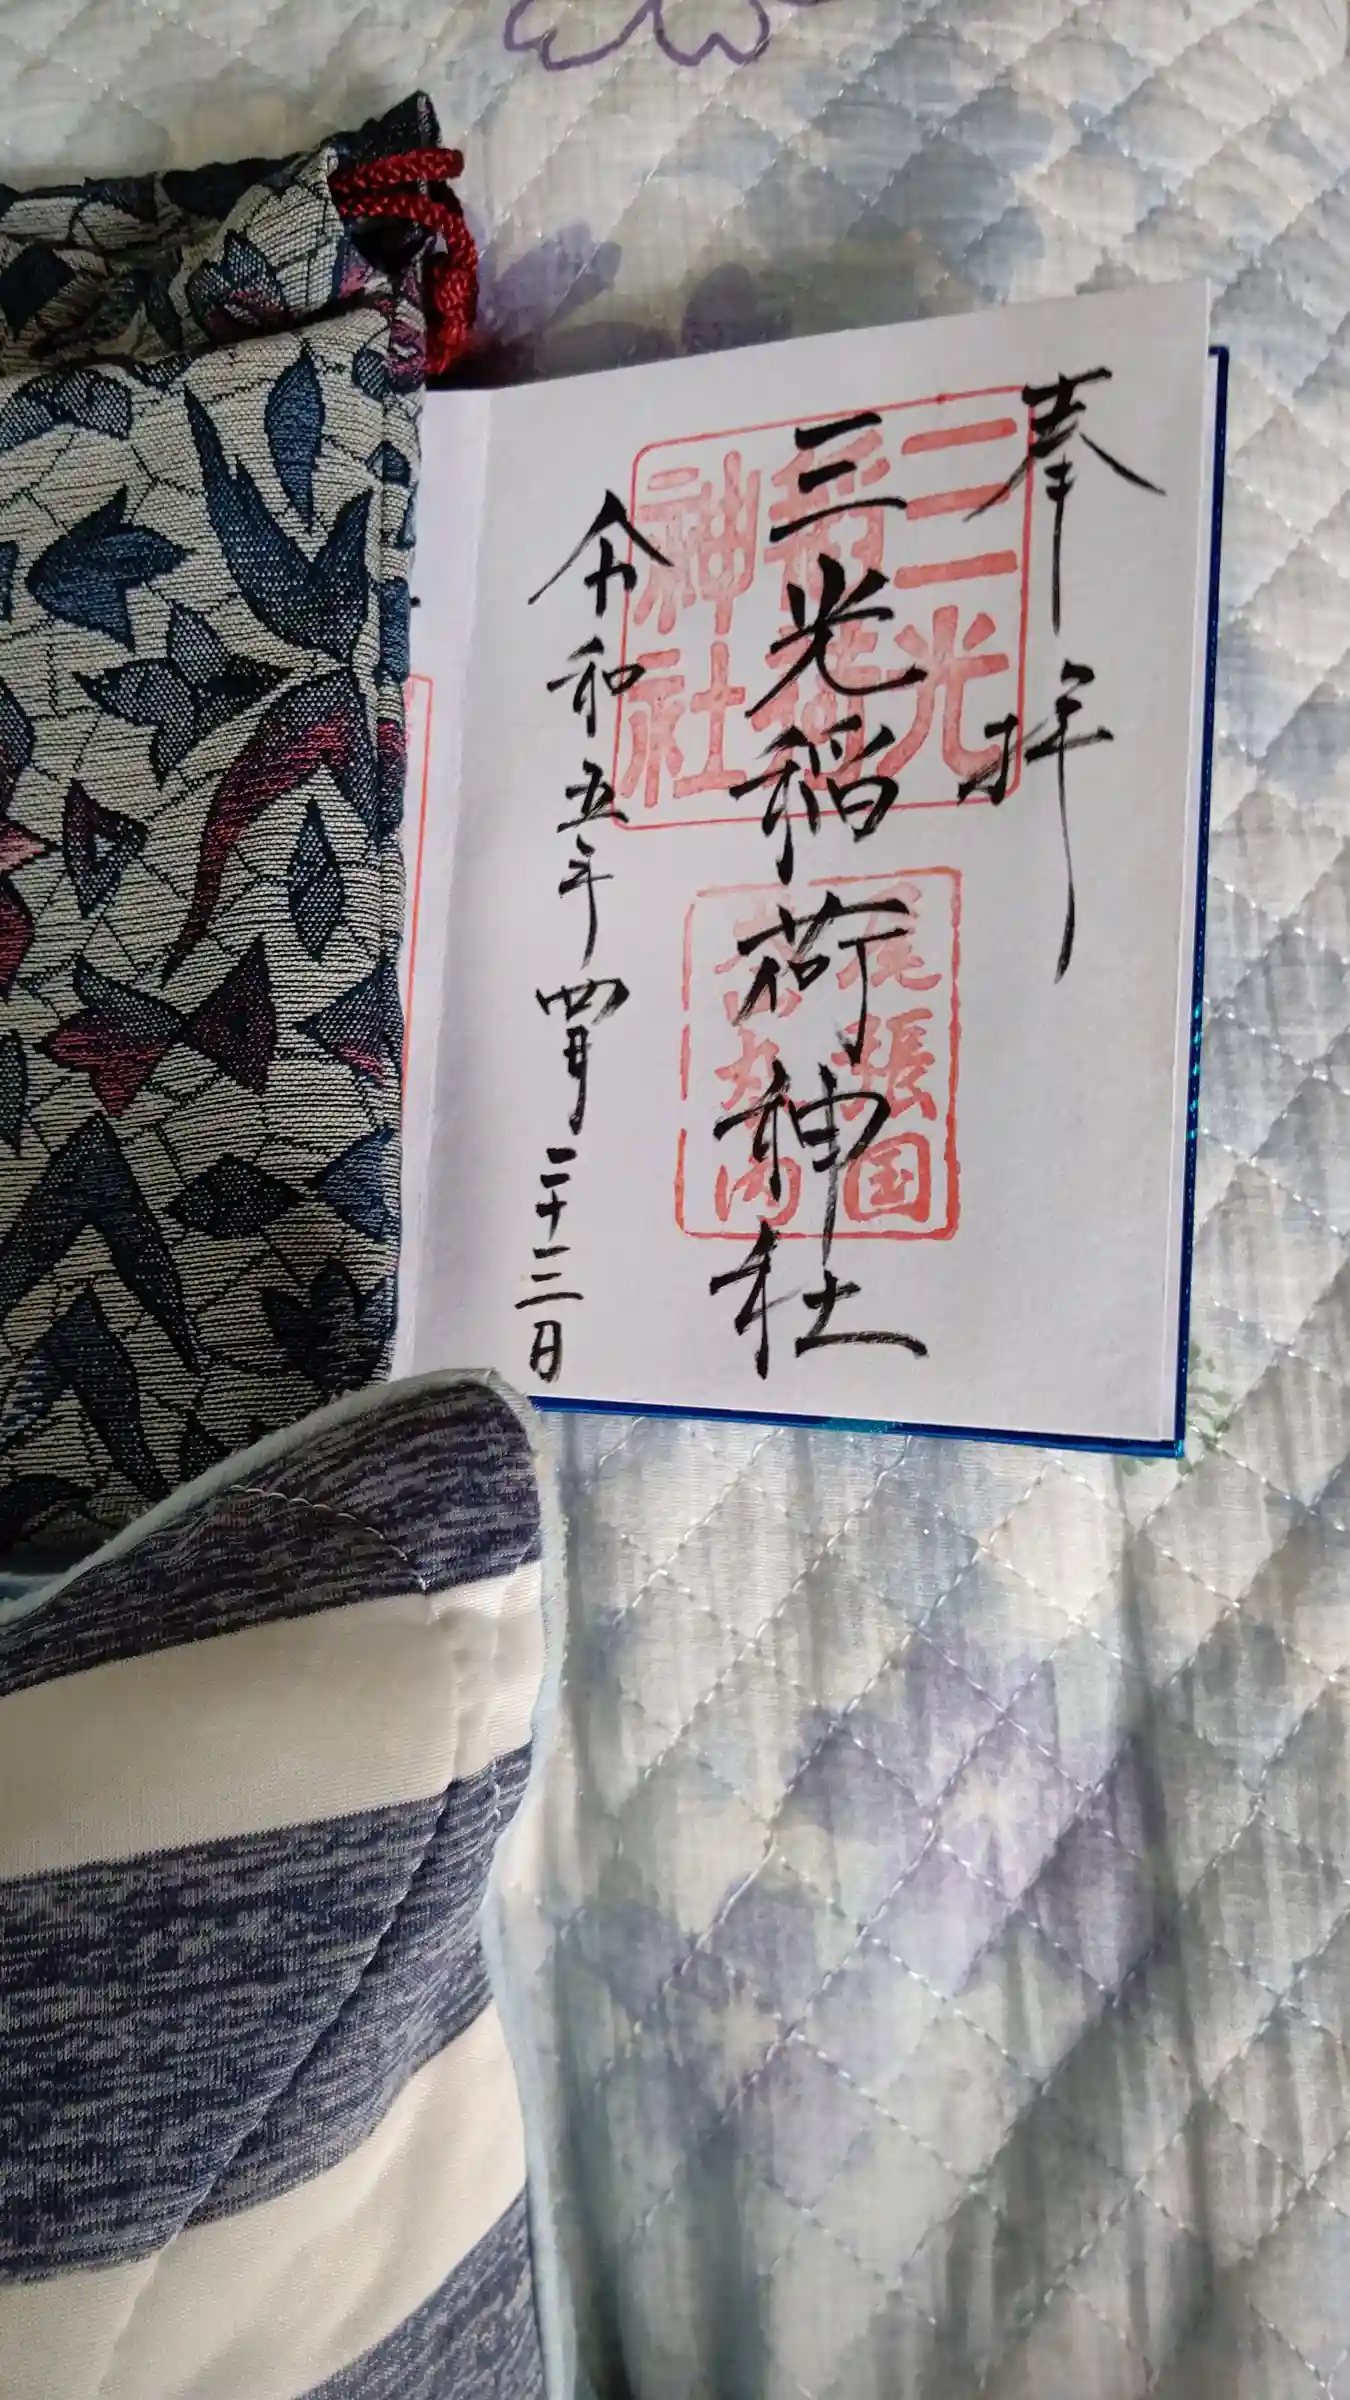 奉拝
三光稲荷神社
令和五年四月二十三日
三光
稲荷
神社
尾張国
犬山丸内